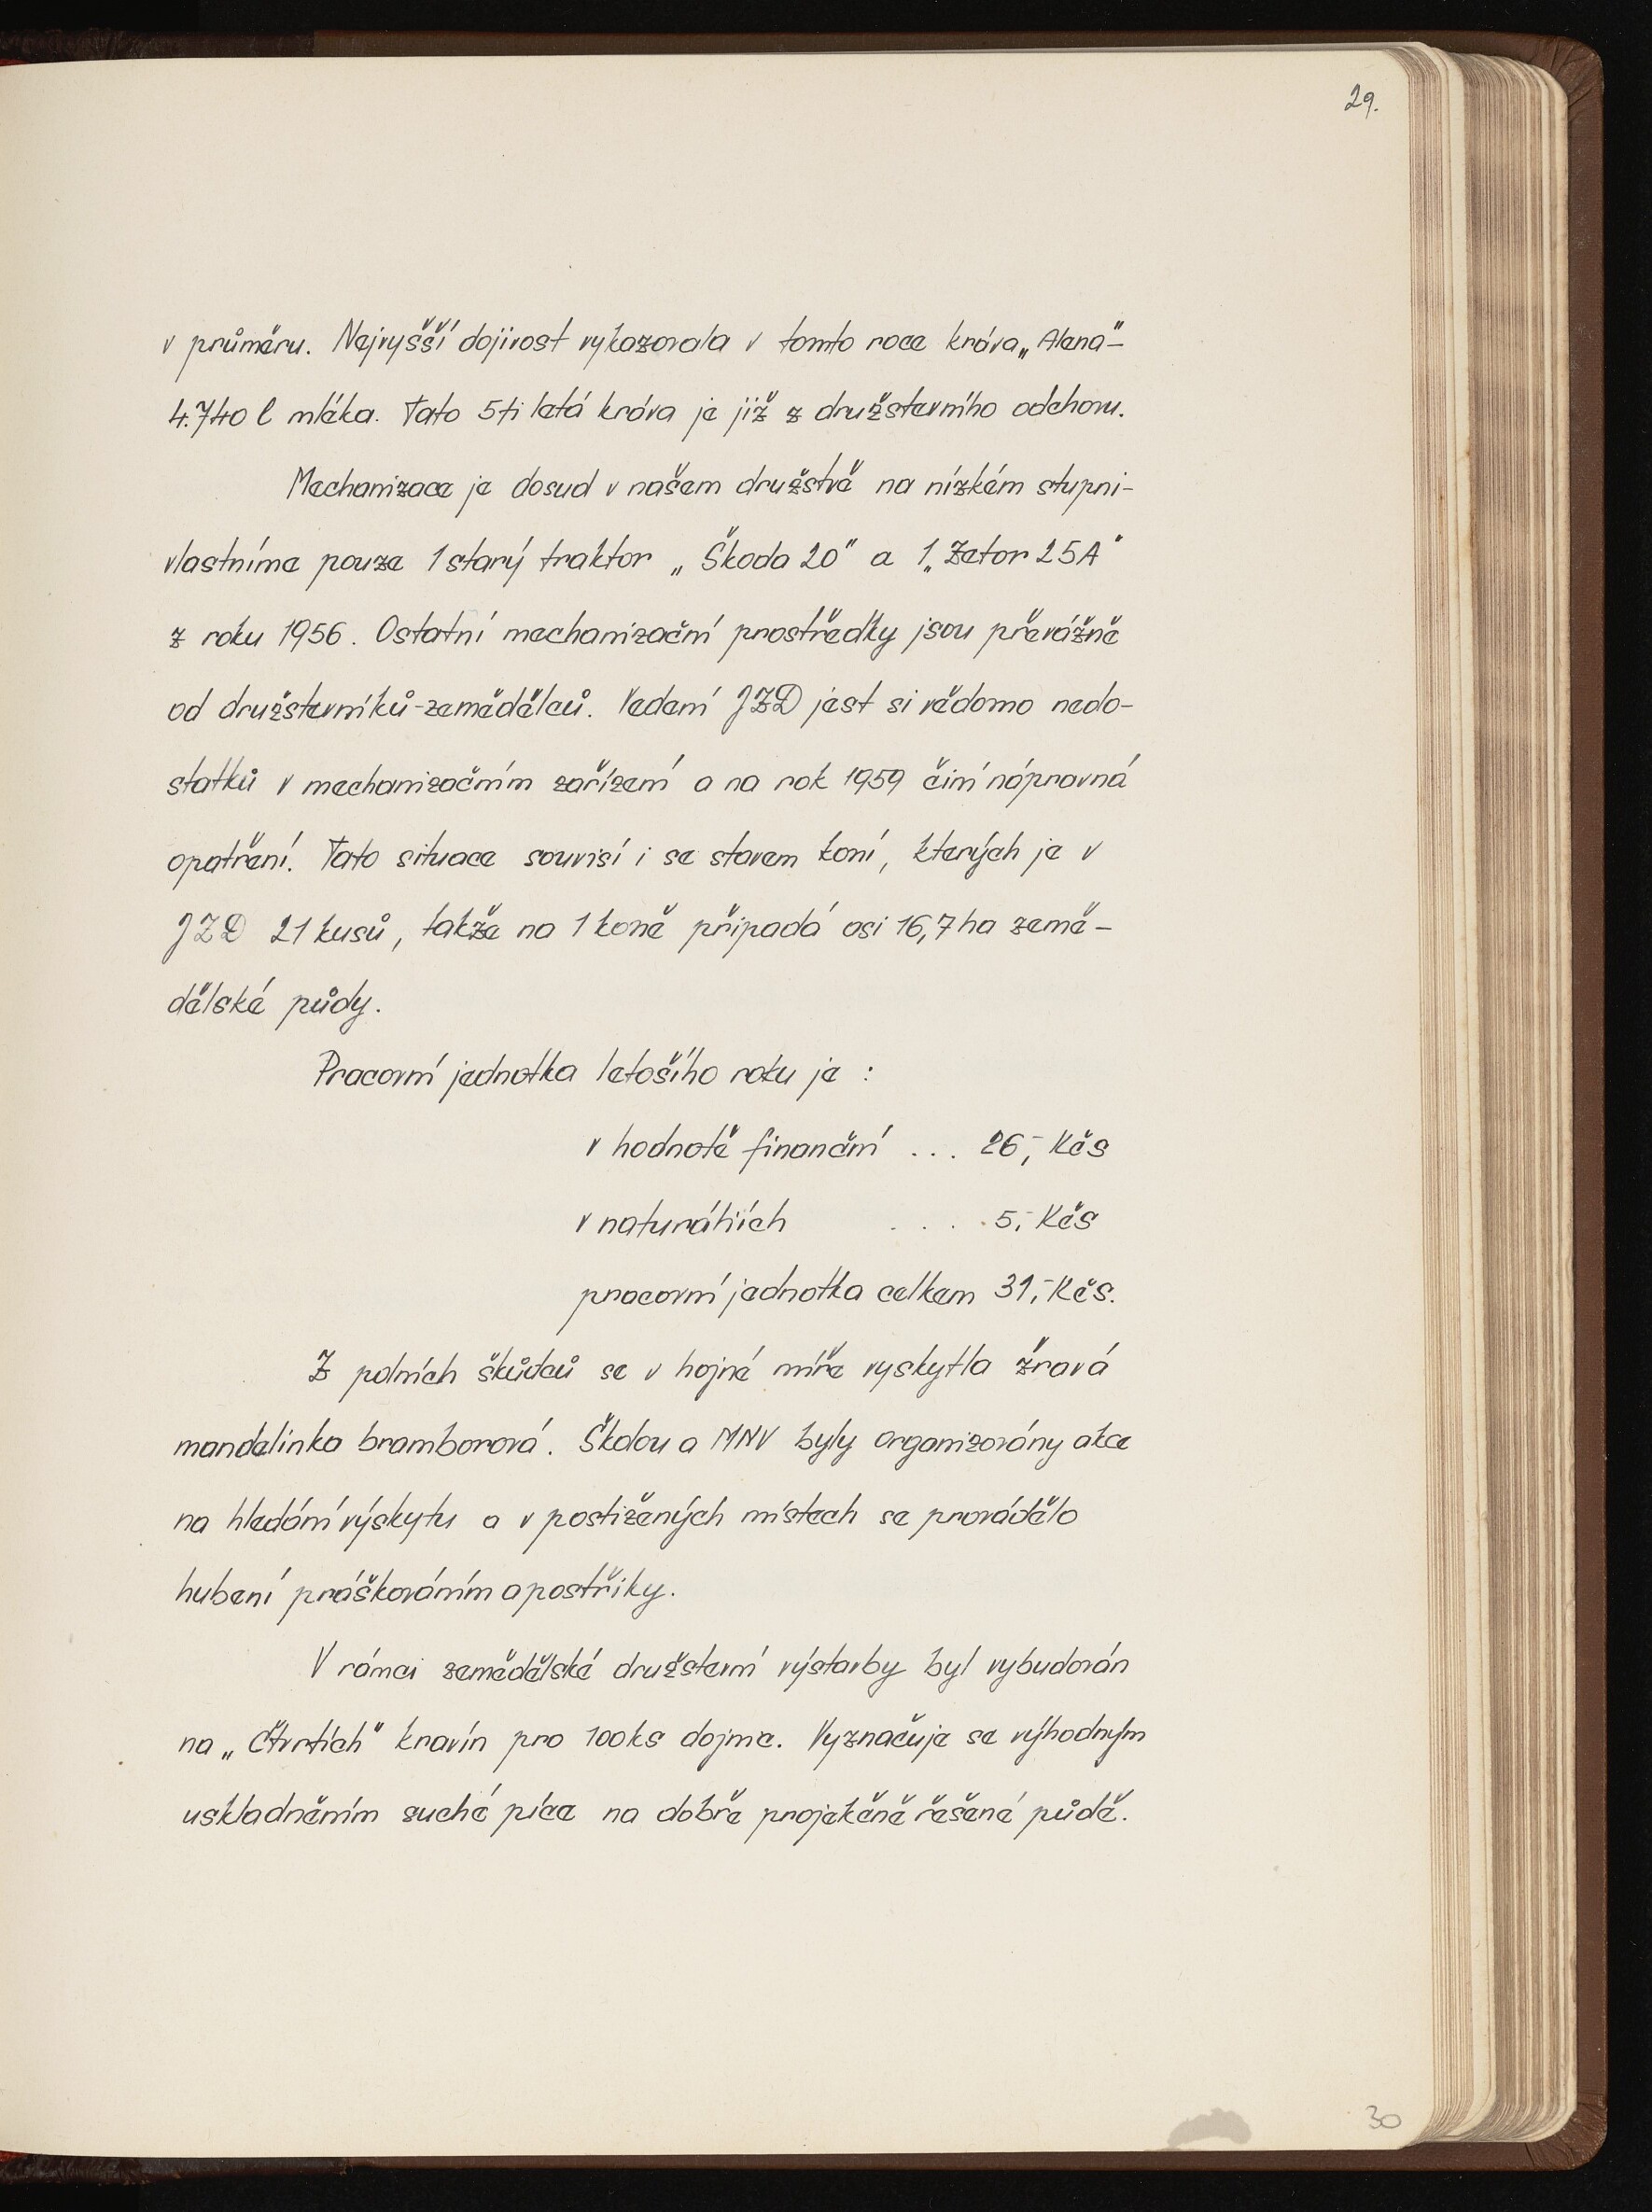 29.
v průměru. Nejvyšší dojivost vykazovala v tomto roce kráva „Alena" -
4.740 l mléka. Tato 5ti letá kráva je již z družstevního odchovu.
Mechanizace je dosud v našem družstvě na nízkém stupni -
vlastníme pouze 1 starý traktor „Škoda 20" a 1 „Zetor 25A"
z roku 1956. Ostatní mechanizační prostředky jsou převážně
od družstevníků-zemědělců. Vedení JZD jest si vědomo nedo-
statků v mechanizačním zařízení a na rok 1959 činí nápravná
opatření. Tato situace souvisí i se stavem koní, kterých je v
JZD 21 kusů, takže na 1 koně připadá asi 16,7 ha země-
dělské půdy.
Pracovní jednotka letošího roku je :
v hodnotě finanční ... 26,- Kčs
v naturáliích .... 5,- Kčs
pracovní jednotka celkem 31,- Kčs.
Z polních škůdců se v hojné míře vyskytla žravá
mandelinka bramborová. Školou a MNV byly organizovány akce
na hledání výskytu a v postižených místech se provádělo
hubení práškováním a postřiky.
V rámci zemědělské družstevní výstavby byl vybudován
na „Čtvrtích" kravín pro 100 ks dojnic. Vyznačuje se výhodným
uskladněním suché píce na dobře projekčně řešené půdě.
30